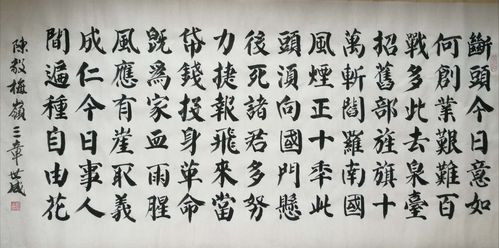 斷頭今日意如
何創業艱難百
戰多此去泉臺
招舊部旌旗十
萬斬閻羅南國
風煙正十秊此
頭須向國門懸
後死諸君多努
力捷報飛來當
帋錢投身革命
既爲家血雨腥
風應有崖取義
成仁今日事人
間遍種自由花
陳毅梅嶺三章世